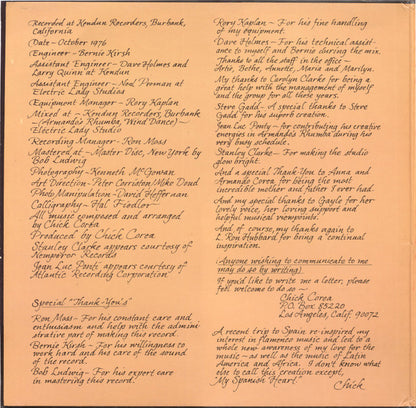 Recorded at Kendun Recorders, Burbank,
California
Date - October 1976
Engineer - Bernie Kirsh
Assistant Engineer - Dave Holmes and
Larry Quinn at Kendun
Assistant Engineer - Neal Preman at
Electric Lady Studios
Equipment Manager - Rory Kaplan
Mixed at - Kendun Recorders, Burbank
- (Armando's Rhumba, Wind Dance) -
Electric Lady Studio
Recording Manager - Ron Moss
Mastered at - Master Disc, New York by
Bob Ludwig
Photography - Kenneth McGowan
Art Direction - Peter Corriston/Mike Doud
Photo Manipulation - David Heffernan
Calligraphy - Hal Fiedler
All music composed and arranged
by Chick Corea
Produced by Chick Corea
Stanley Clarke appears courtesy of
Nemperor Records
Jean Luc Ponti appears courtesy of
Atlantic Recording Corporation
Special "Thank-You's"
Ron Moss - For his constant care and
enthusiasm and help with the admini
strative part of making this record.
Bernie Kirsh - For his willingness to
work hard and his care of the sound
of the record.
Bob Ludwig - For his expert care
in mastering this record.
Rory Kaplan - For his fine handling
of my equipment.
Dave Holmes - For his technical assist-
ance to myself and Bernie during the mix.
Thanks to all the staff in the office -
Artie, Bethe, Annette, Maria and Marilyn.
My thanks to Carolyn Clarke for being a
great help with the management of myself
and the group for all these years.
Steve Gadd - A special thanks to Steve
Gadd for his superb creation.
Jean Luc Ponty - for contributing his creative
energies in Armando's Rhumba during his
very busy schedule.
Stanley Clarke - For making the studio
glow bright.
And a special Thank You to Anna and
Armando Corea, for being the most
incredible mother and father I ever had.
And my special thanks to Gayle for her
lovely voice, her loving support and
helpful musical viewpoints.
And, of course, my thanks again to
L. Ron Hubbard for being a continual
inspiration.
(Anyone wishing to communicate to me
may do so by writing)
If you'd like to write me a letter, please
feel welcome to do so -
Chick Corea
P.O. Box 85220
Los Angeles, Calif. 90072
A recent trip to Spain re-inspired my
interest in flamenco music and led to a
whole new awareness of my love for the
music - as well as the music of Latin
America and Africa. I don't know what
else to call this creation except,
"My Spanish Heart."
Chick